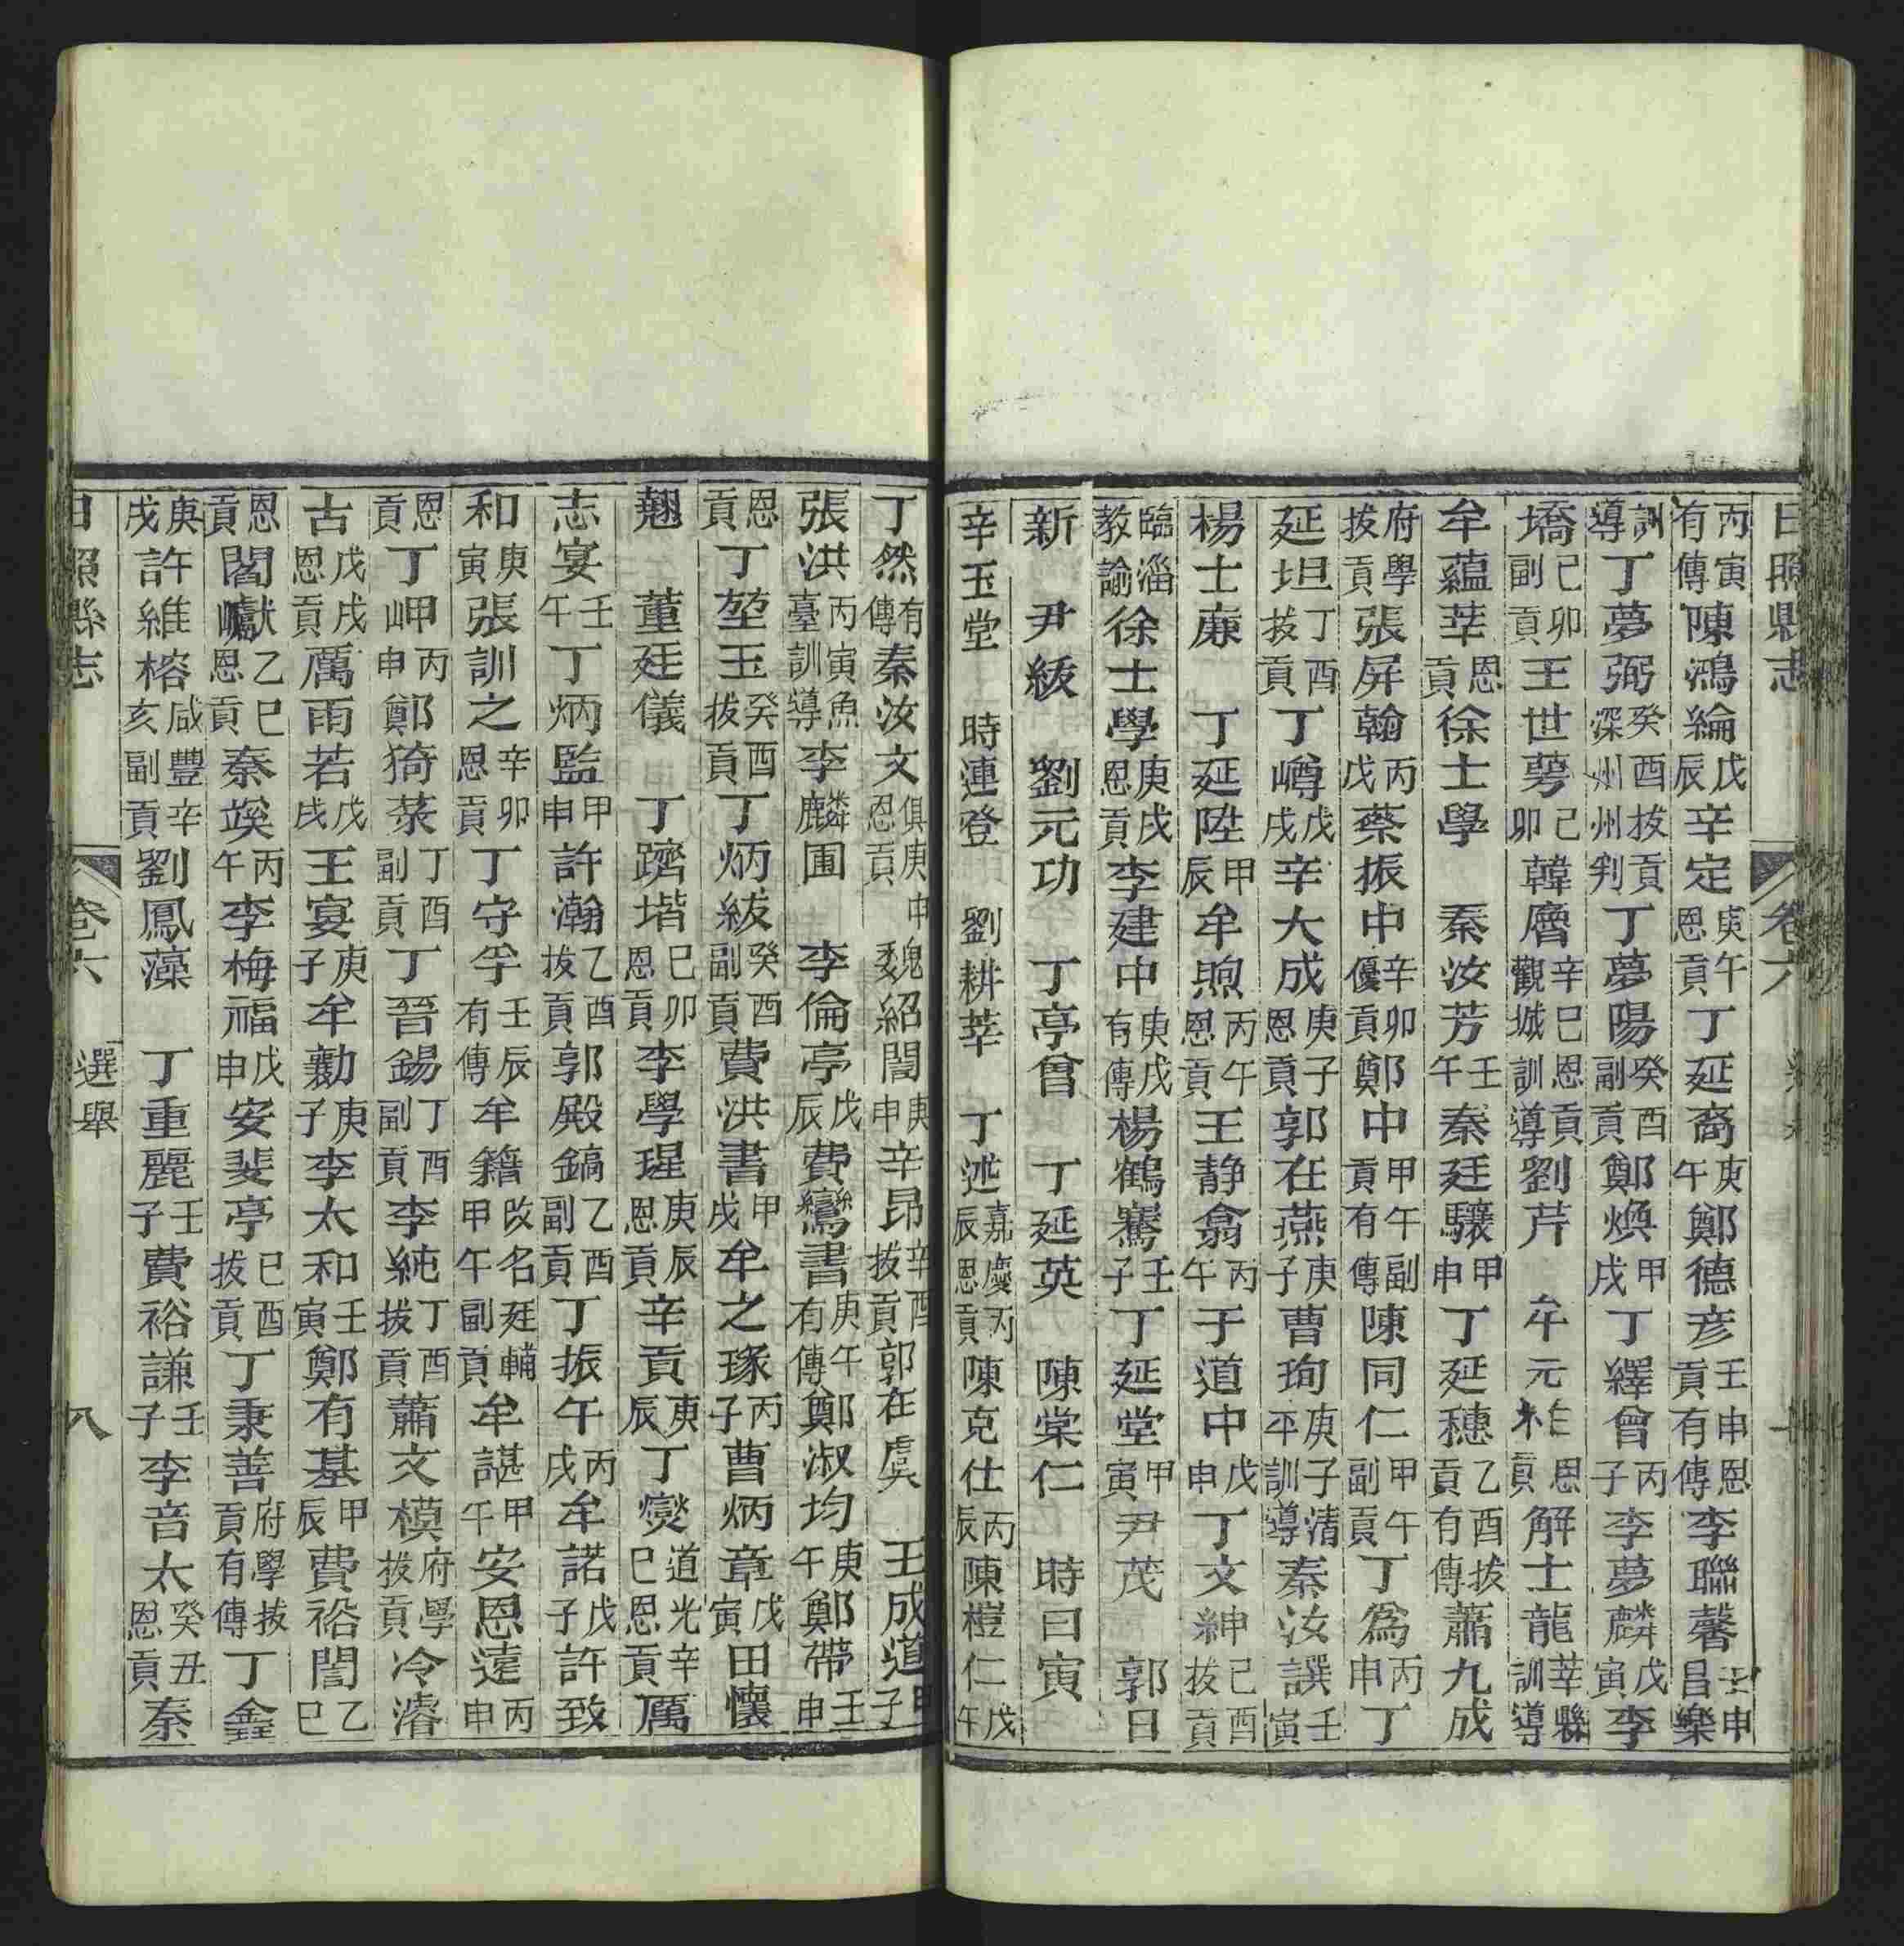 日照縣志 卷六
丙寅有傳陳鴻綸戊辰辛定庚午恩貢丁延裔庚午鄭德彥壬申恩貢有傳李聯馨壬申昌樂
訓導丁夢弼癸酉拔貢深州州判丁夢陽癸酉副貢鄭煥甲戌丁繹曾丙子李夢麟戊寅李
墧己卯副貢王世蕚己卯韓層辛巳恩貢觀城訓導劉芹 牟元恩貢解士龍莘縣訓導
牟蘊莘恩貢徐士學 秦汝芳壬午秦廷驤甲申丁延穗乙酉拔貢有傳蕭九成
府學拔貢張屏翰丙戌蔡振中辛卯優貢鄭中甲午副貢有傳陳同仁甲午副貢丁為丙申丁
延坦丁酉拔貢丁嶟戊戌辛大成庚子恩貢郭在燕庚子曹珣庚子清平訓導秦汝譔壬寅
楊士廉 丁延陞甲辰牟煦丙午恩貢王静翕丙午于道中戊申丁文紳己酉拔貢
臨淄教諭徐士學庚戌恩貢李建中庚戌有傳楊鶴騫壬子丁延堂甲寅尹茂 郭日
新 尹紱 劉元功 丁亭曾 丁延英 陳棠仁 時曰寅
辛玉堂 時連登 劉耕莘 丁述嘉慶丙辰恩貢陳克仕丙辰陳榿仁戊午
丁然有傳秦汝文俱庚申恩貢魏紹誾庚申辛昂辛酉拔貢郭在虞 王成道甲子
張洪丙寅魚臺訓導李麟圃 李倫亭戊辰費鸞書庚午有傳鄭淑均庚午鄭帶壬申
恩貢丁堃玉癸酉拔貢丁炳紱癸酉副貢費洪書甲戌牟之瑑丙子曹炳章戊寅田懷
翹 董廷儀 丁躋堦己卯恩貢李學瑆庚辰恩貢辛貢庚辰丁爕道光辛巳恩貢厲
志宴壬午丁炳監甲申許瀚乙酉拔貢郭殿鎬乙酉副貢丁振午丙戌牟諾戊子許致
和庚寅張訓之辛卯恩貢丁守孚壬辰有傳牟籍改名廷輔甲午副貢牟諶甲午安恩遠丙申
恩貢丁岬丙申鄭猗菉丁酉副貢丁晉錫丁酉副貢李純丁酉拔貢蕭文模府學拔貢冷濬
古戊戌恩貢厲雨若戊戌王宴庚子牟勷庚子李太和壬寅鄭有基甲辰費裕誾乙巳
恩貢閻巘乙巳恩貢秦竢丙午李梅福戊申安斐亭己酉拔貢丁秉善府學拔貢有傳丁鑫
庚戌許維榕咸豐辛亥副貢劉鳳藻 丁重麗壬子費裕謙壬子李音太癸丑恩貢秦
日照縣志 卷六 選舉 八